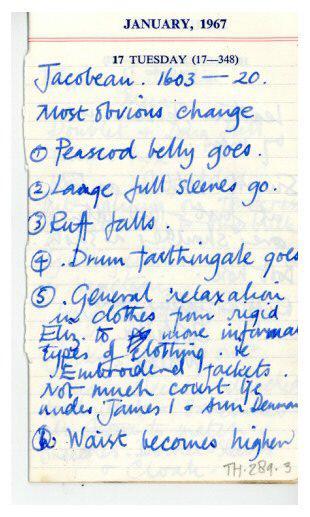 JANUARY, 1967
17 TUESDAY (17—348)
Jacobean. 1603 — 20.
Most obvious change
① Peascod belly goes.
② Large full sleeves go.
③ Ruff falls.
④ . Drum farthingale goes
⑤ . General relaxation
in clothes from rigid
Eliz. to more informal
types of clothing. ie
Embroidered jackets.
Not much court life
under James I + Ann Denmar
⑥ Waist becomes higher
TH.289.3